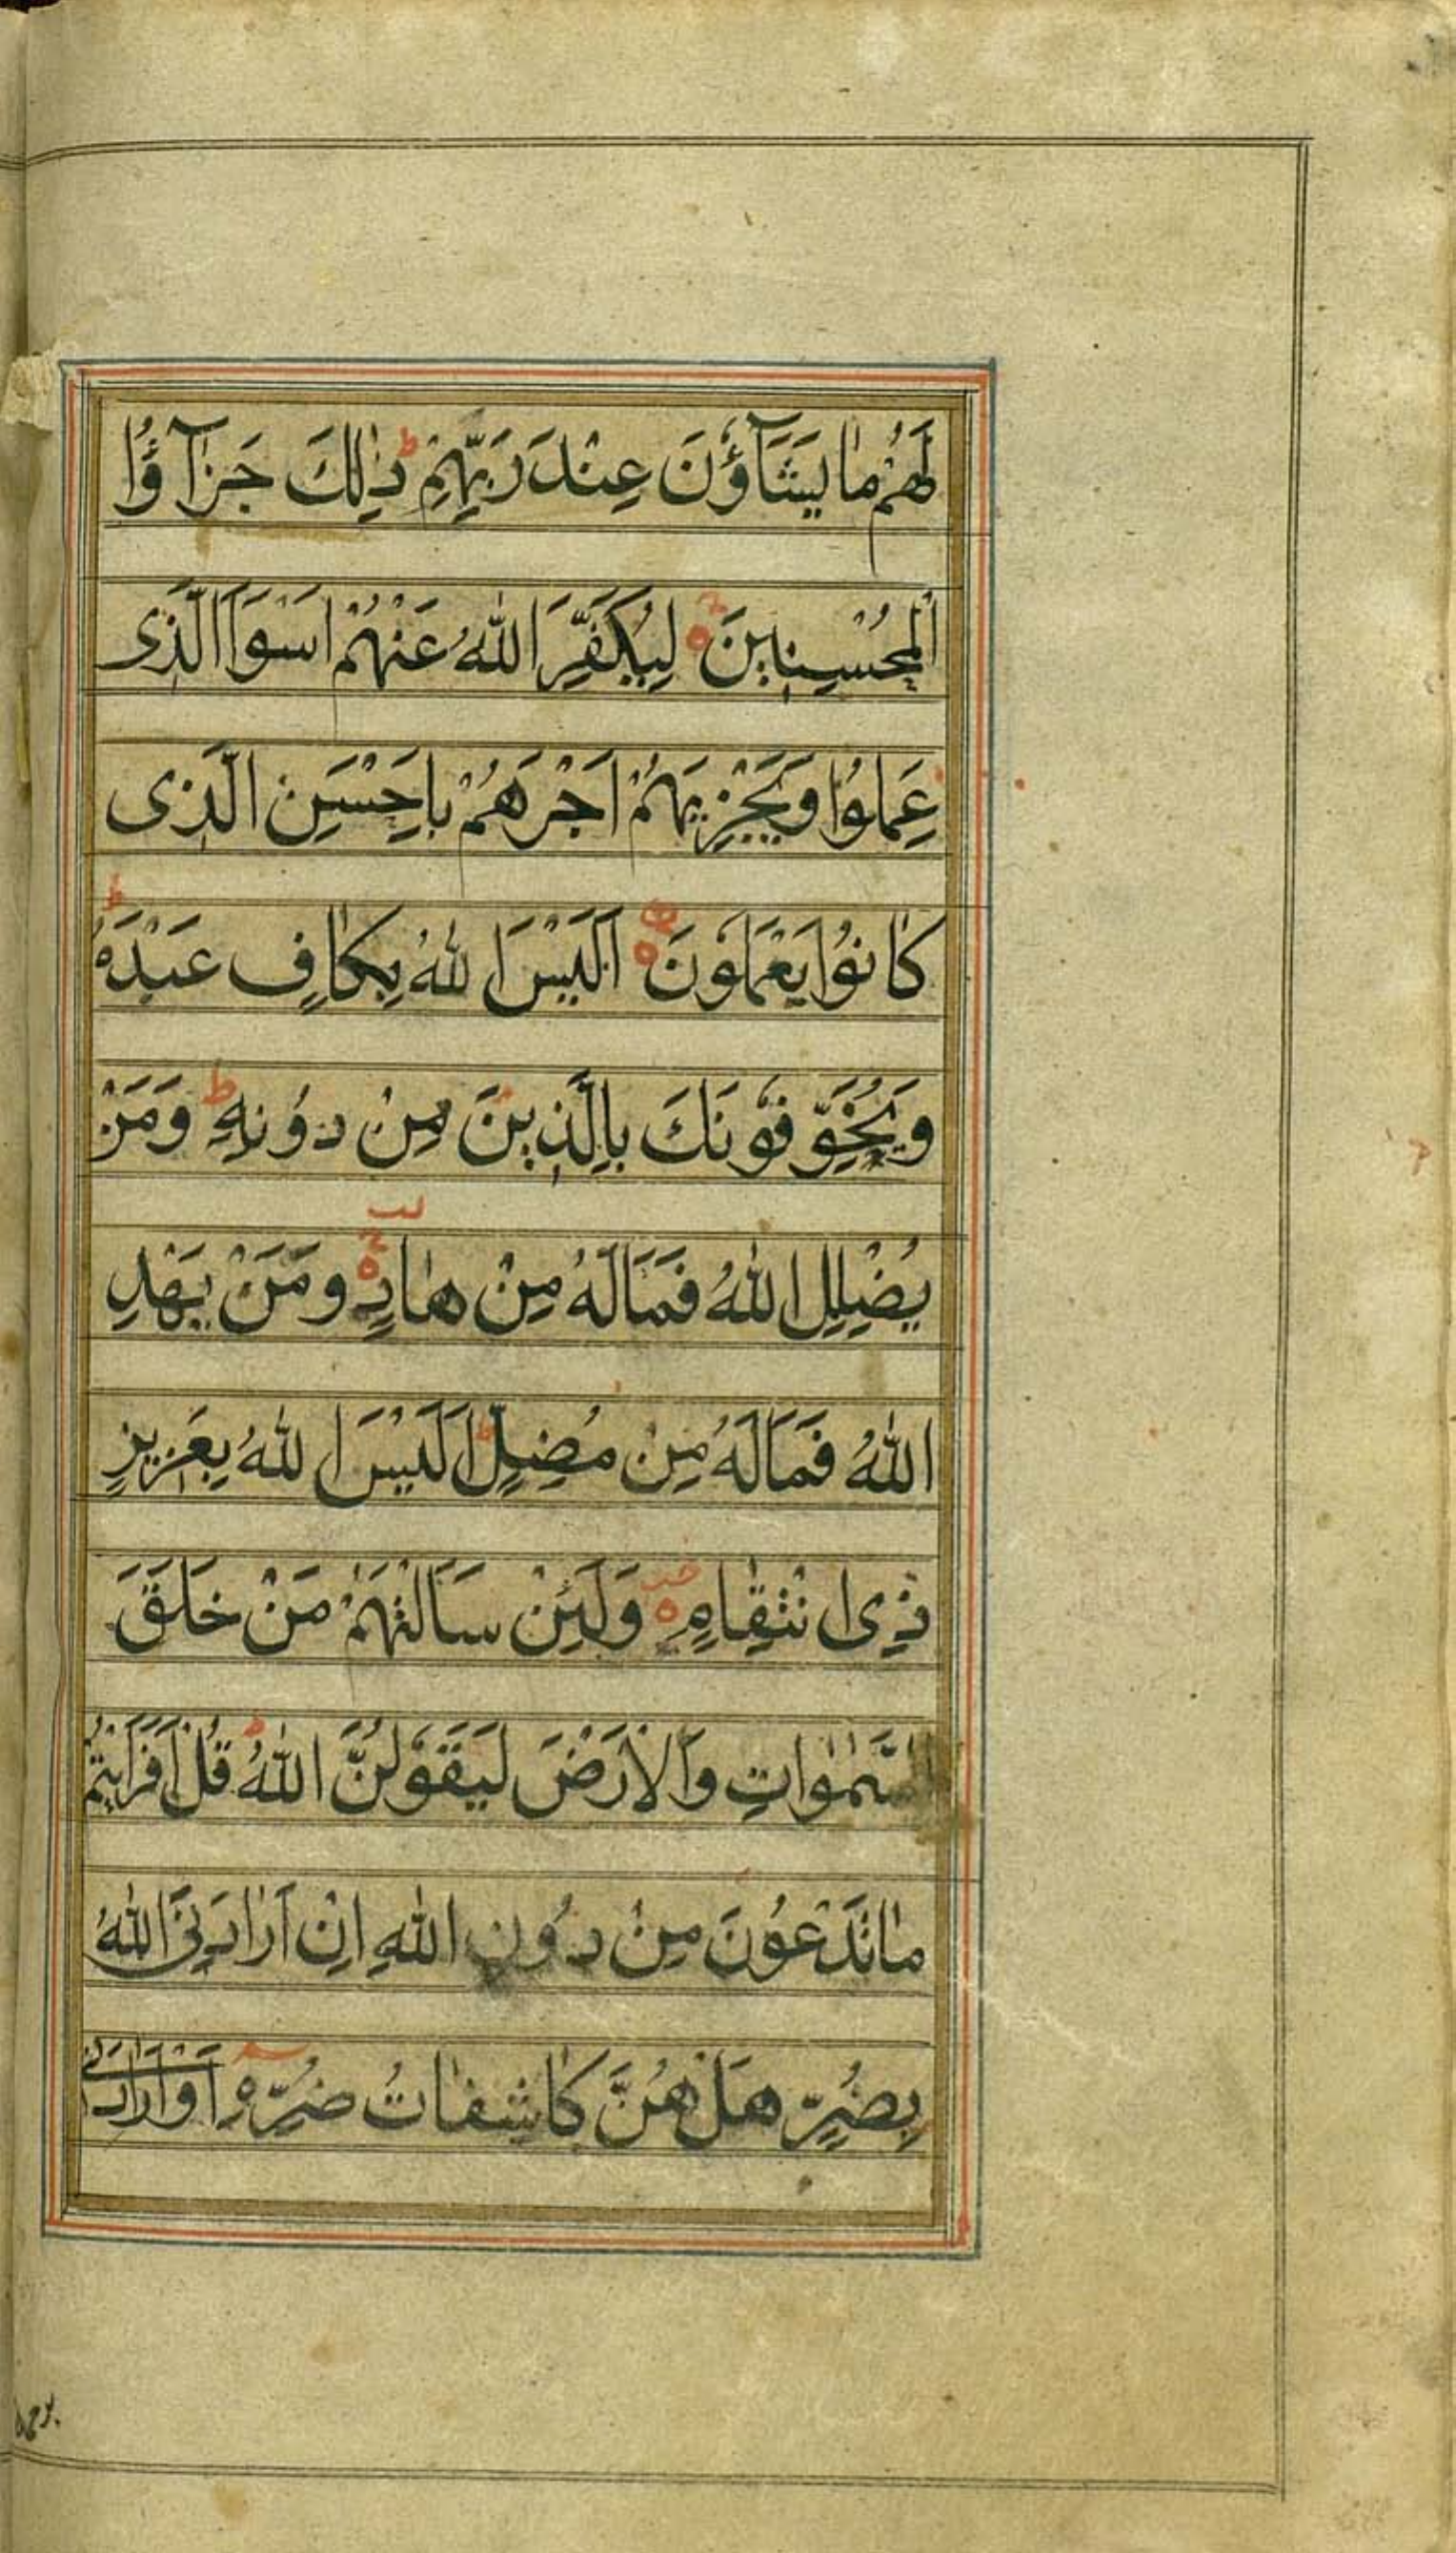 لَهُمْ مٰا يَشَآؤُنَ عِنْدَ رَبِّهِمْ ط ذٰلِكَ جَزٰآؤُا
الْمُحْسِنِينَ ه لِيُكَفِّرَ اللّٰهُ عَنْهُمْ اَسْوَاَ الَّذِى
عَمِلُوا وَيَجْزِيَهُمْ اَجْرَهُمْ بِاَحْسَنِ الَّذِى
كٰانُوا يَعْمَلُونَ ه اَلَيْسَ اللّٰهُ بِكٰافٍ عَبْدَهُ ط
وَيُخَوِّفُونَكَ بِالَّذِينَ مِنْ دُونِهِ ط وَمَنْ
يُضْلِلِ اللّٰهُ فَمَا لَهُ مِنْ هٰادٍ ه وَمَنْ يَهْدِ
اللّٰهُ فَمَا لَهُ مِنْ مُضِلٍّ ط اَلَيْسَ اللّٰهُ بِعَزِيزٍ
ذِى انْتِقٰامٍ ه وَلَئِنْ سَاَلْتَهُمْ مَنْ خَلَقَ
السَّمٰوٰاتِ وَالْاَرْضَ لَيَقُولُنَّ اللّٰهُ ط قُلْ اَفَرَاَيْتُمْ
مٰا تَدْعُونَ مِنْ دُونِ اللّٰهِ اِنْ اَرٰادَنِىَ اللّٰهُ
بِضُرٍّ هَلْ هُنَّ كٰاشِفٰاتُ ضُرِّهِ اَوْ اَرٰادَنِى